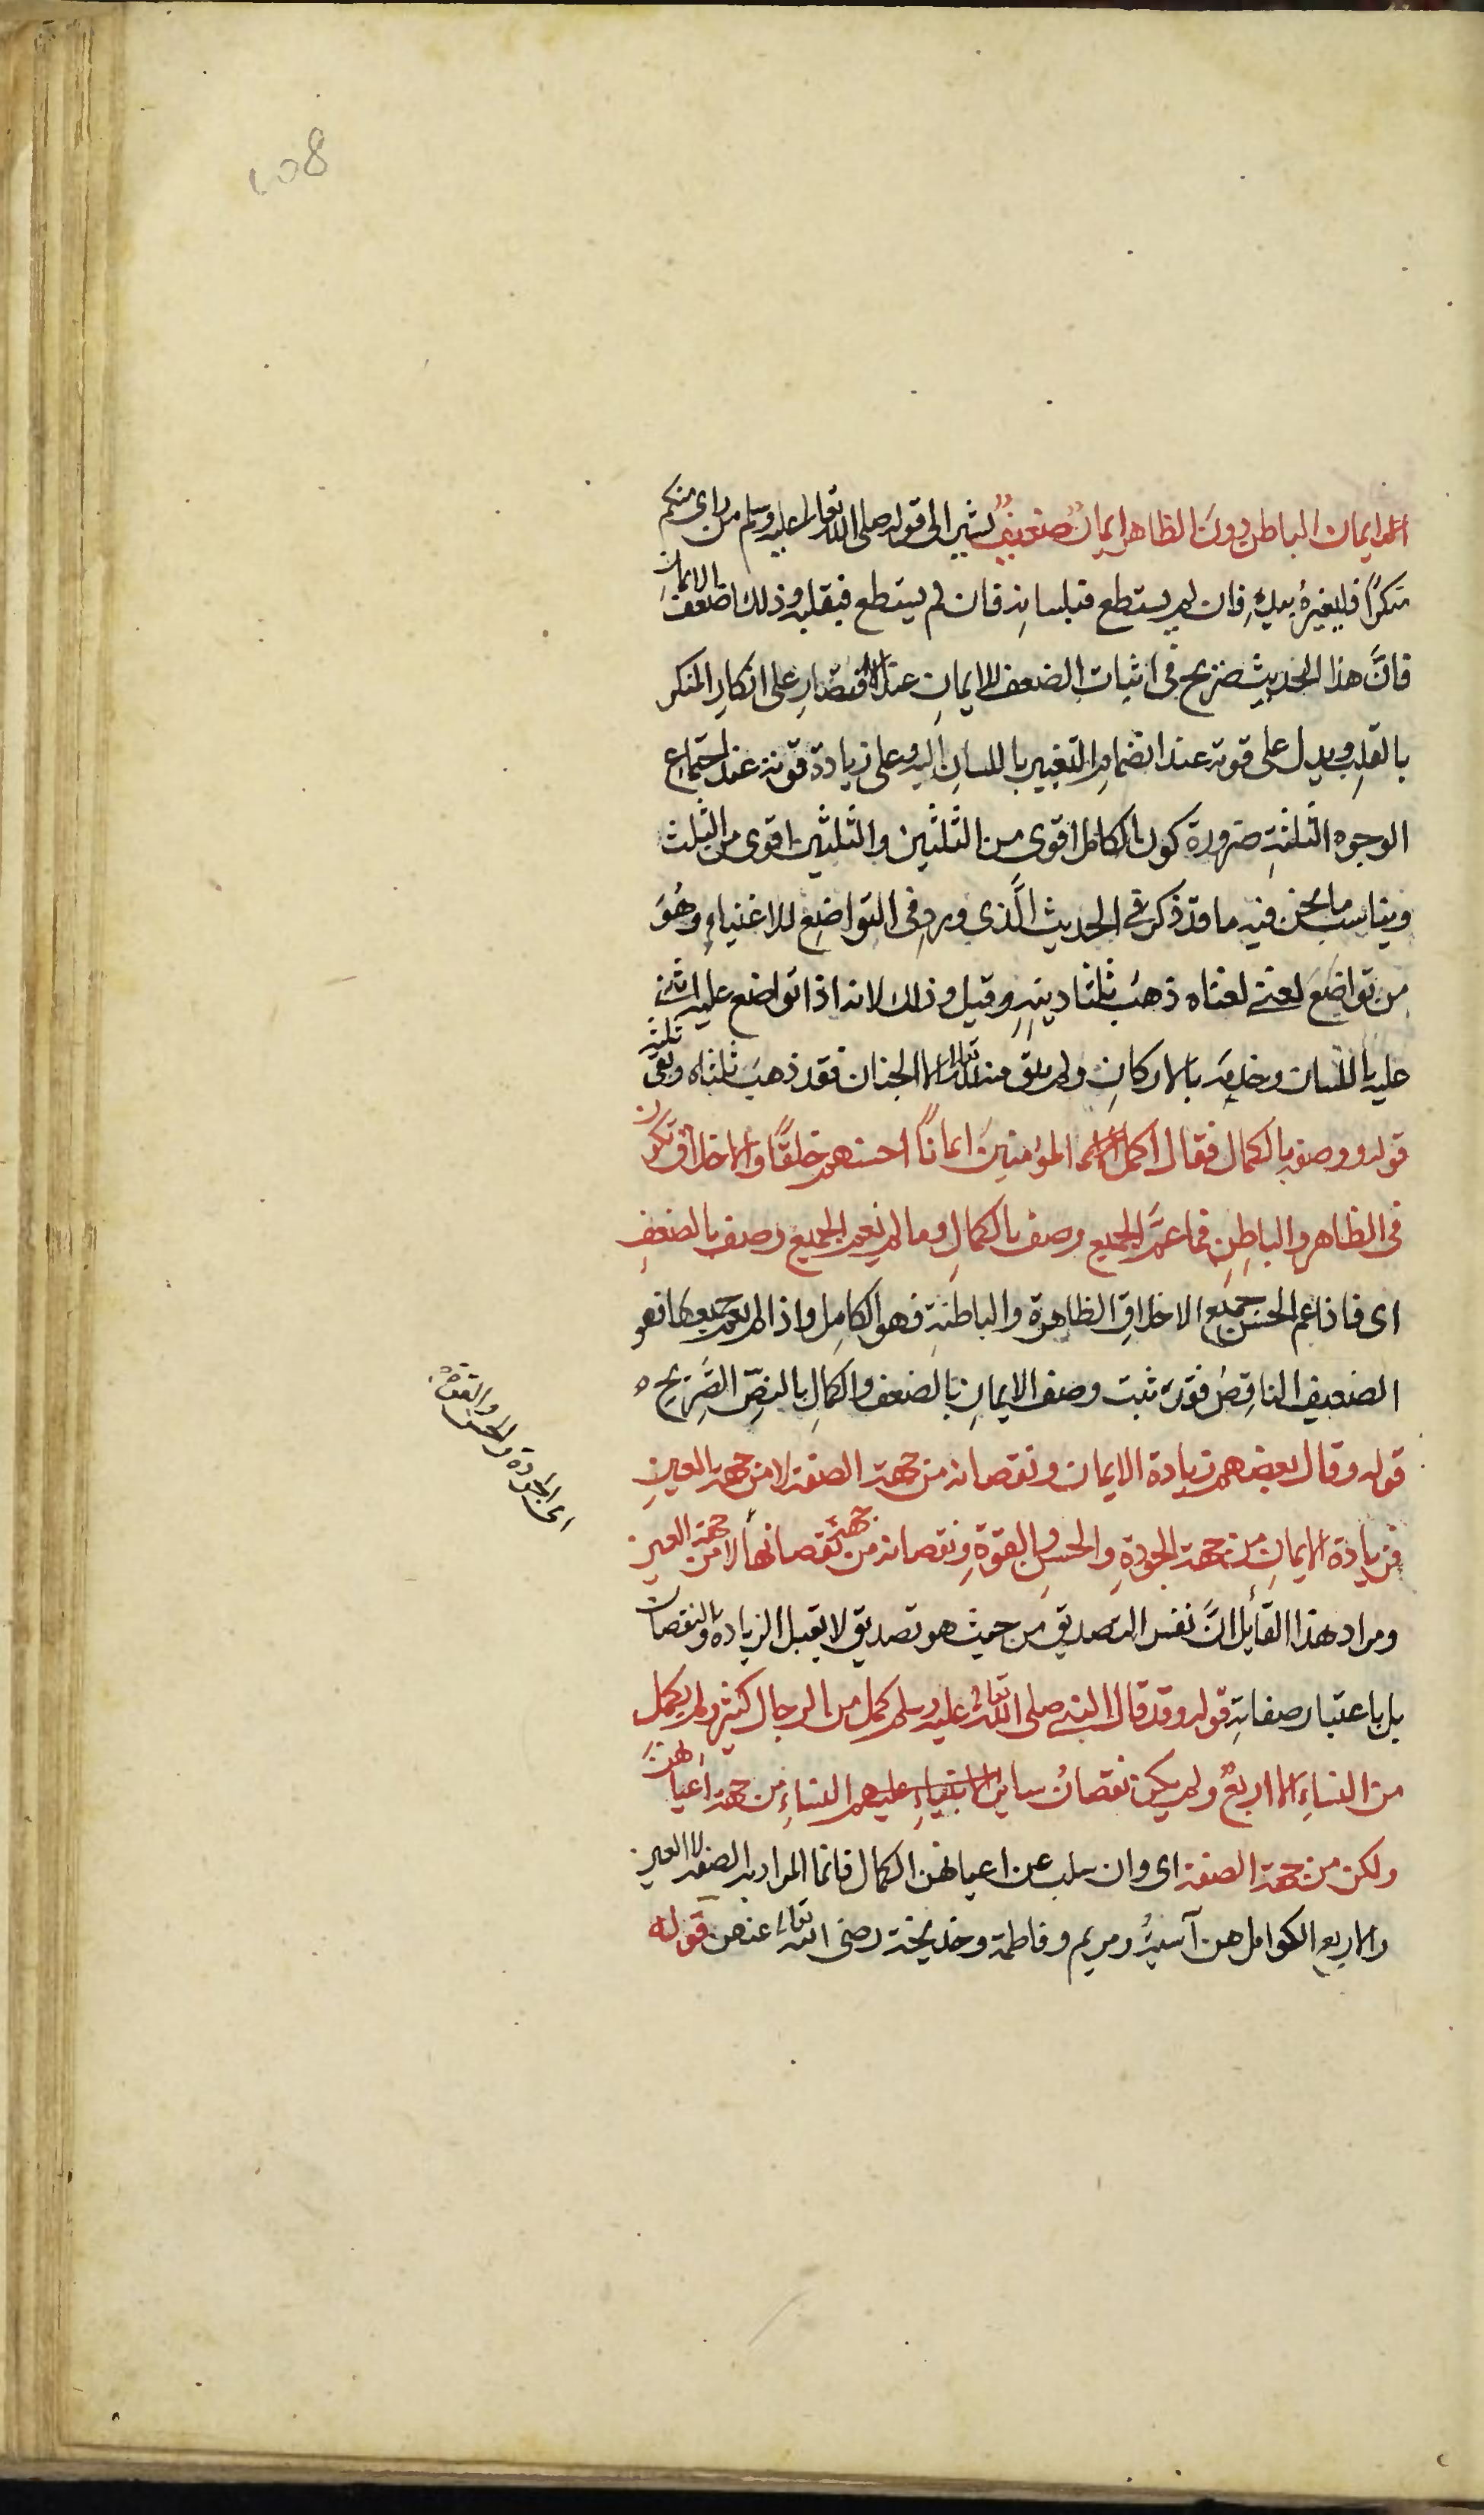 108
ايمان الباطن دون الظاهر ايمانٌ ضعيفٌ يشير الى قوله صلى الله تعالى عليه وسلم من رأى منكم
منكرًا فليغيرهُ بيدِهِ فان لم يستطع فبلسانهِ فان لم يستطع فبقلبه وذلك اضعف الايمان
فانَّ هذا الحديث صريح فى اثبات الضعف للايمانِ عند الاقتصارِ على انكارِ المنكر
بالقلبِ ويدل على قوته عند انضمامِ التغيير باللسانِ اليه وعلى زيادة قوته عند اجتماع
الوجوه الثلثةِ ضرورة كون الكامل اقوى من الثلثين والثلثين اقوى من الثلث
ويناسب ما نحن فيه ما قد ذكر فى الحديث الَّذى ورد فى التواضعِ للاغنياءِ وهُوَ
من تواضَعَ لغنى لغناه ذهبَ ثلثا دينِهِ وقيل وذلك لانه اذا تواضع عليه اثنى
عليه باللسان وخدمَه بالاركانِ ولم يبق منه الا الجنان فقد ذهبَ ثلثاه وبقى ثلثه
قوله ووصفه بالكمال فقال اكمل المؤمنينَ ايمانًا احسنهم خلقًا والاخلاق تكون
فى الظاهر والباطِنِ فما عمَّ الجميع وصف بالكمالِ وما لم يعم الجميع وصف بالضعفِ
اى فاذا عم الحسن جميع الاخلاقِ الظاهرة والباطنةِ فهو الكامِل واذا لم يعم جميعها فهو
الضعيف الناقِصُ فقد ثبت وصف الايمانِ بالضعف والكمالِ بالنصّ الصَّريحِ
قوله وقال بعضهم زيادة الايمان ونقصانه من جهة الصفة لا من جهة العينِ
فزيادة الايمانِ من جهة الجودةِ والحسنِ والقوةِ ونقصانه من جهة نقصانها لا من جهة العين
اى الجودة والحسن والقوة
ومراد هذا القائل انَّ نفس التصديقِ من حيث هو تصديق لا يقبل الزيادة والنقصان
بل باعتبار صفاتهِ قوله وقد قال النبى صلى الله تعالى عليه وسلم كمل من الرجال كثير ولم يكمل
من النساءِ الا اربعٌ ولم يكن نقصانُ سايرِ النساءِ من جهة اعيانهنَّ
ولكن من جهة الصفة اى وان سلب عن اعيانهن الكمال فانما المراد به الصفة لا العين
والاربع الكوامل هن آسيةُ ومريم وفاطمة وخديجة رضى الله تعالى عنهن قوله